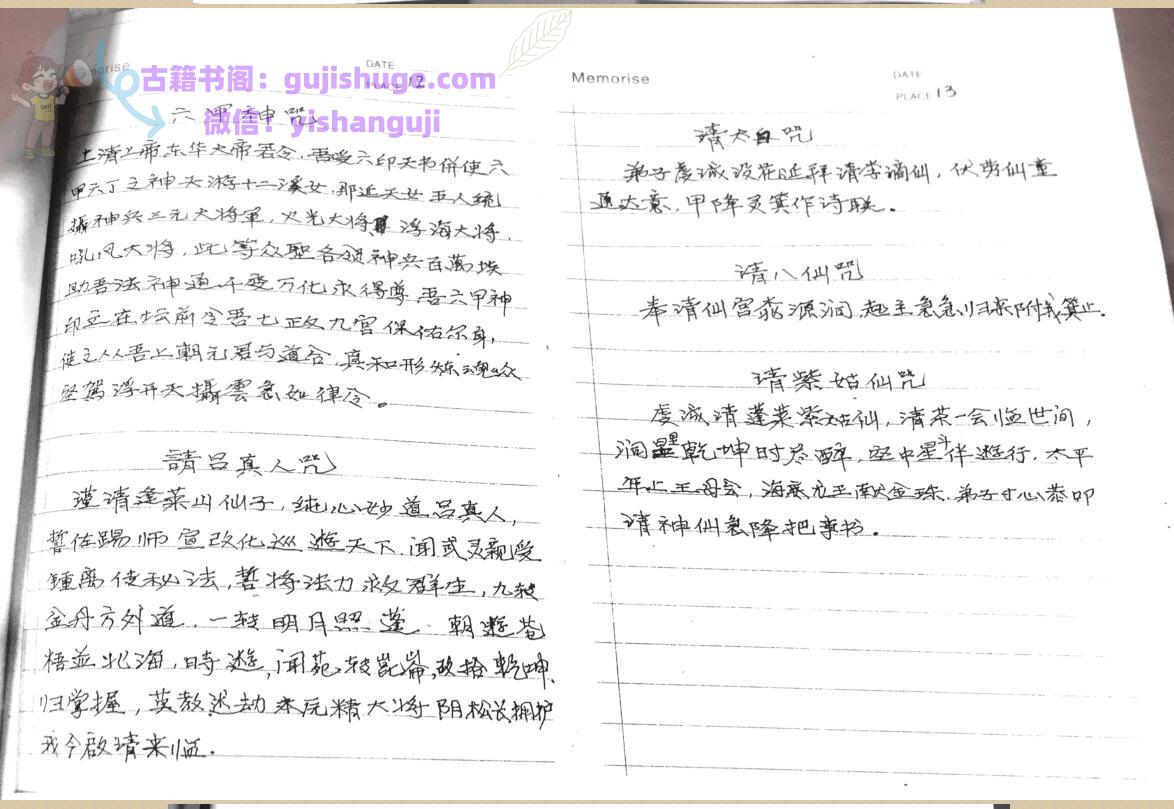 Memorise
DATE
PLACE 12
古籍书阁：gujishuge.com
微信：yishanguji
六 神咒
上清上帝东华大帝君令，吾受六印天书併使六
甲六丁之神天游十二溪女，那近天女五人统
攝神兵三元大将軍，火光大将軍 浮海大将，
吼风大将，此等众聖各领神兵百萬埃
助吾法神通千变万化求得尊吾六甲神
印立在坛前令吾七政九宫保佑尔身，
使之人人吾上朝元君与道合，真和形炼魂众
登駕浮开天攝雲急如律令。
請吕真人咒
谨请蓬莱山仙子，纯心妙道吕真人，
誓在踢师宣改化巡遊天下，闻或灵親受
鍾离传秘法，誓将法力救群生，九转
金丹方外道，一转明月照蓬 朝遊苍
梧並北海，時遊，闻苑转崑崙，政拾乾坤
归掌握，英教述劫来元精大将阴松长拥护
我今啟请来临。
Memorise
DATE
PLACE 13
请太白咒
弟子虔诚设花延拜请李谪仙，伏劳仙童
通达意，甲降灵箕作诗联。
请八仙咒
奉请仙宫桃源洞，赴主急急归来附我箕上。
请紫姑仙咒
虔诚请蓬莱紫姑仙，清茶一会临世间，
洞里乾坤时尽醉，空中星斗伴遊行，太平
年上王母会，海底龙王献金珠，弟子寸心恭叩
请神仙急降把事书。